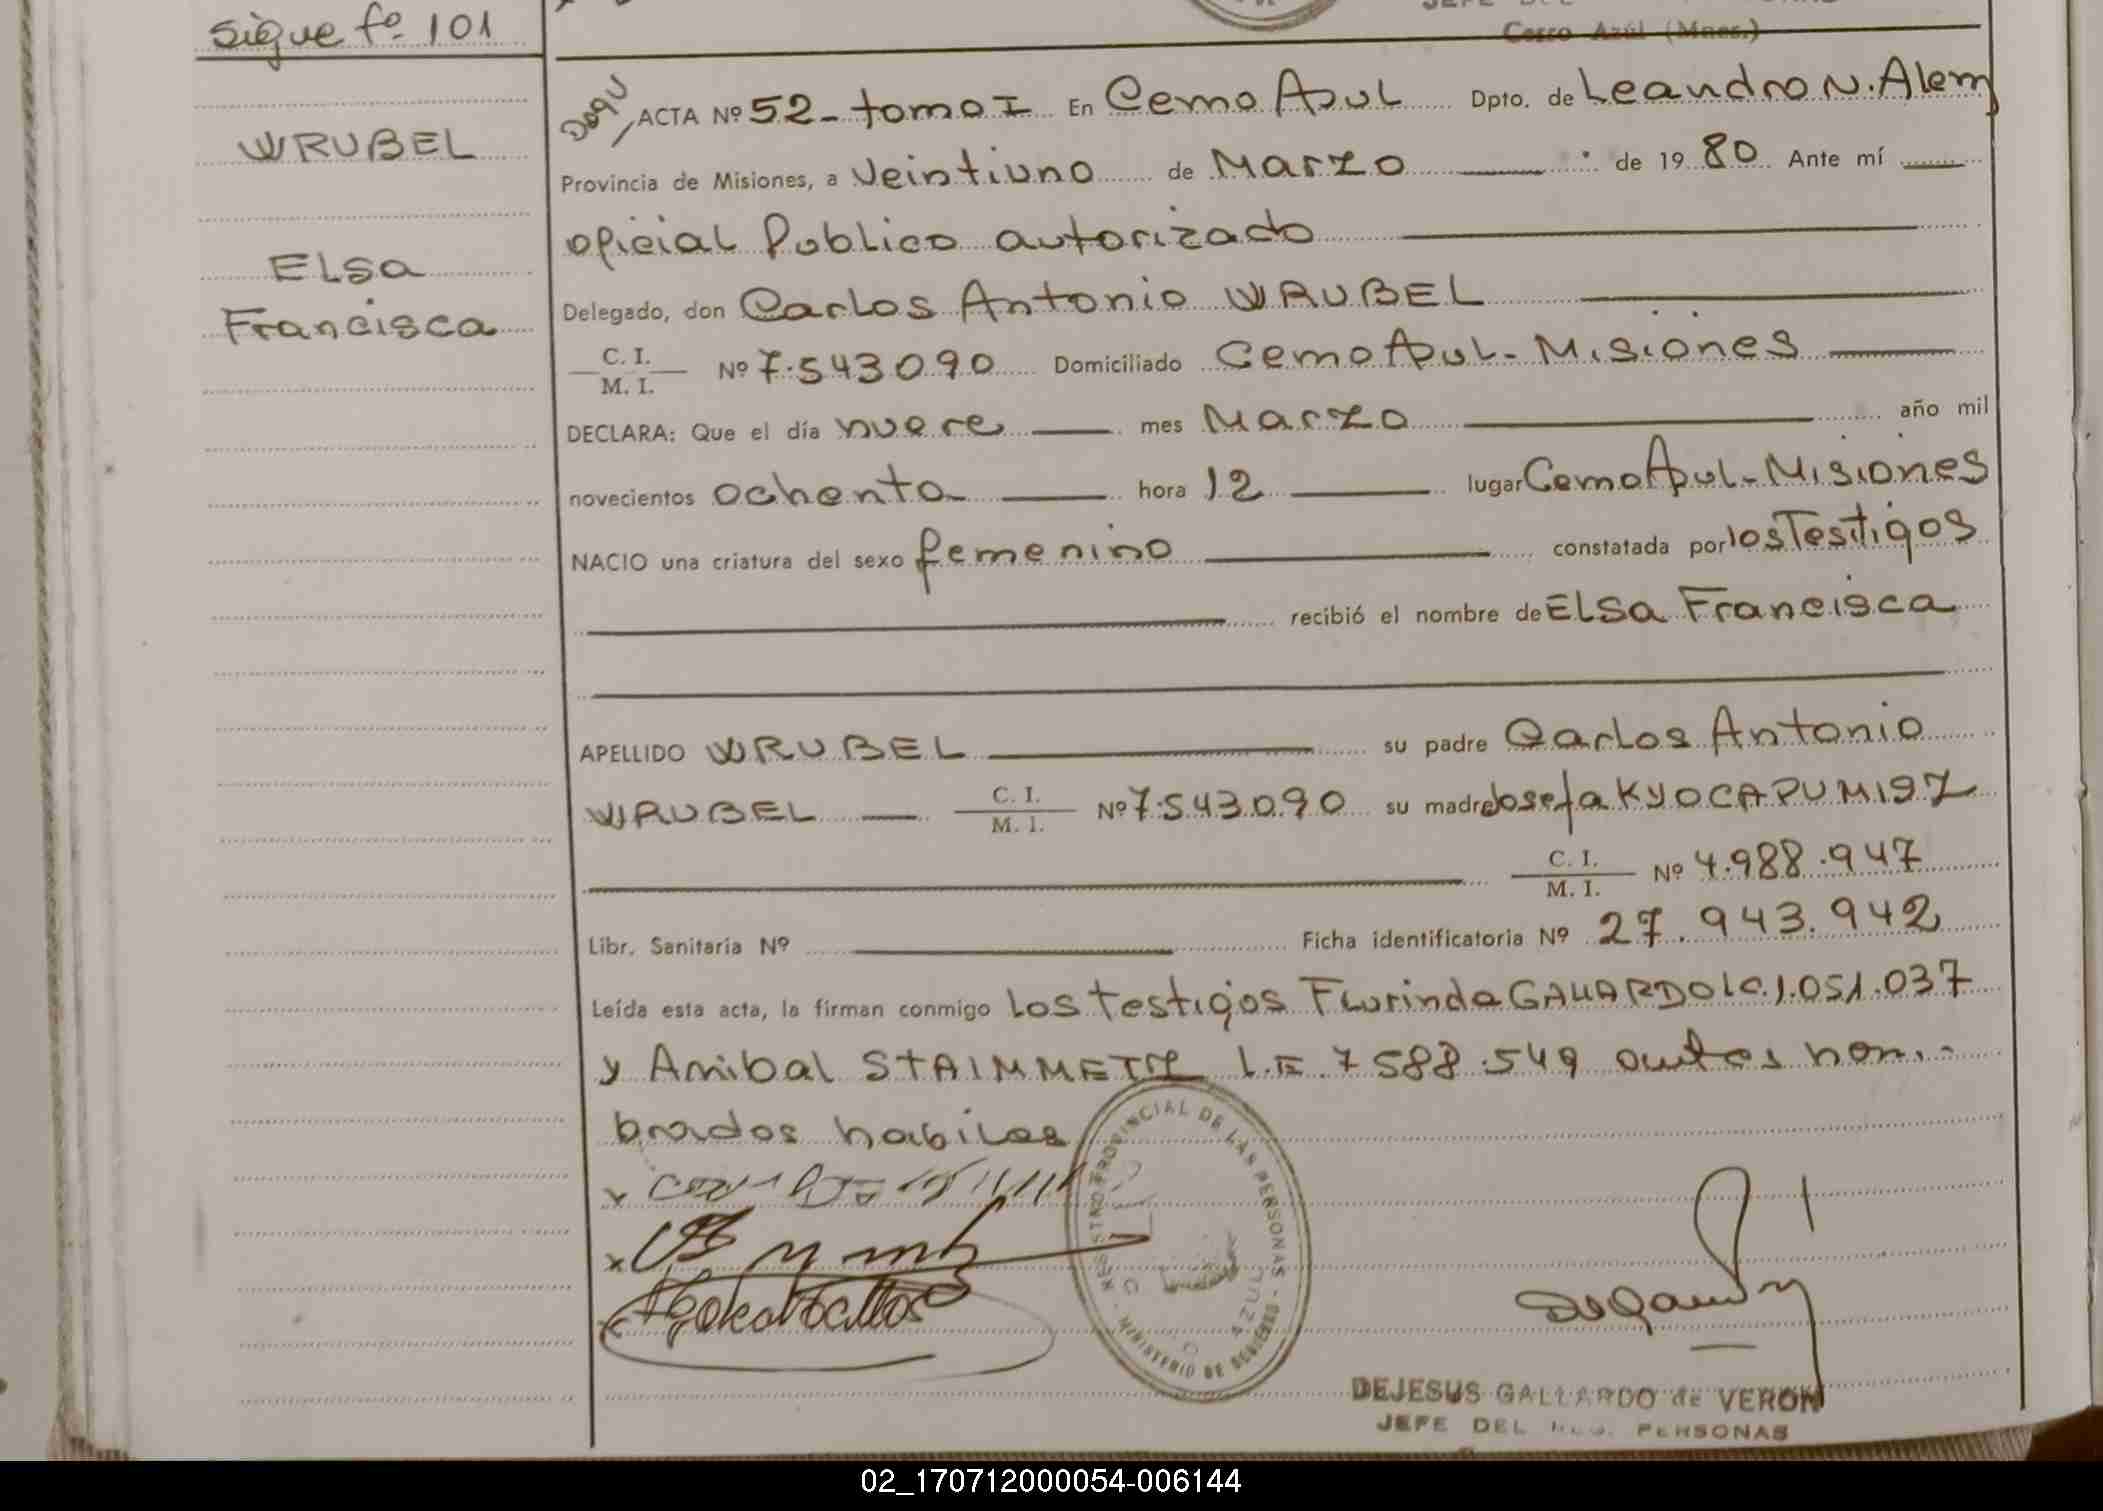 Sigue fº 101
Cerro Azúl (Mnes.)
WRUBEL
ELsa
Francisca
ACTA Nº 52 - tomo I En Cerro Azul Dpto. de Leandro N. Alem
Provincia de Misiones, a Veintiuno de Marzo de 1980 Ante mí
oficial Publico autorizado
Delegado, don Carlos Antonio WRUBEL
C. I.
M. I. Nº 7.543090 Domiciliado Cerro Azul - Misiones
DECLARA: Que el día nueve mes Marzo año mil
novecientos ochenta hora 12 lugar Cerro Azul - Misiones
NACIO una criatura del sexo femenino constatada por los Testigos
recibió el nombre de ELsa Francisca
APELLIDO WRUBEL su padre Carlos Antonio
WRUBEL C. I. M. I. Nº 7.543.090 su madre Josefa
C. I.
M. I. Nº 4.988.947
Libr. Sanitaria Nº Ficha identificatoria Nº 27.943.942
Leída esta acta, la firman conmigo Los testigos Florinda GALLARDO LC. 1.051.037
y Anibal STAIMMETZ L.E. 7588.549 antes nom-
brados habiles
REGISTRO PROVINCIAL DE LAS PERSONAS
MINISTERIO DE GOBIERNO
DEJESUS GALLARDO de VERON
JEFE DEL REG. PERSONAS
02_170712000054-006144